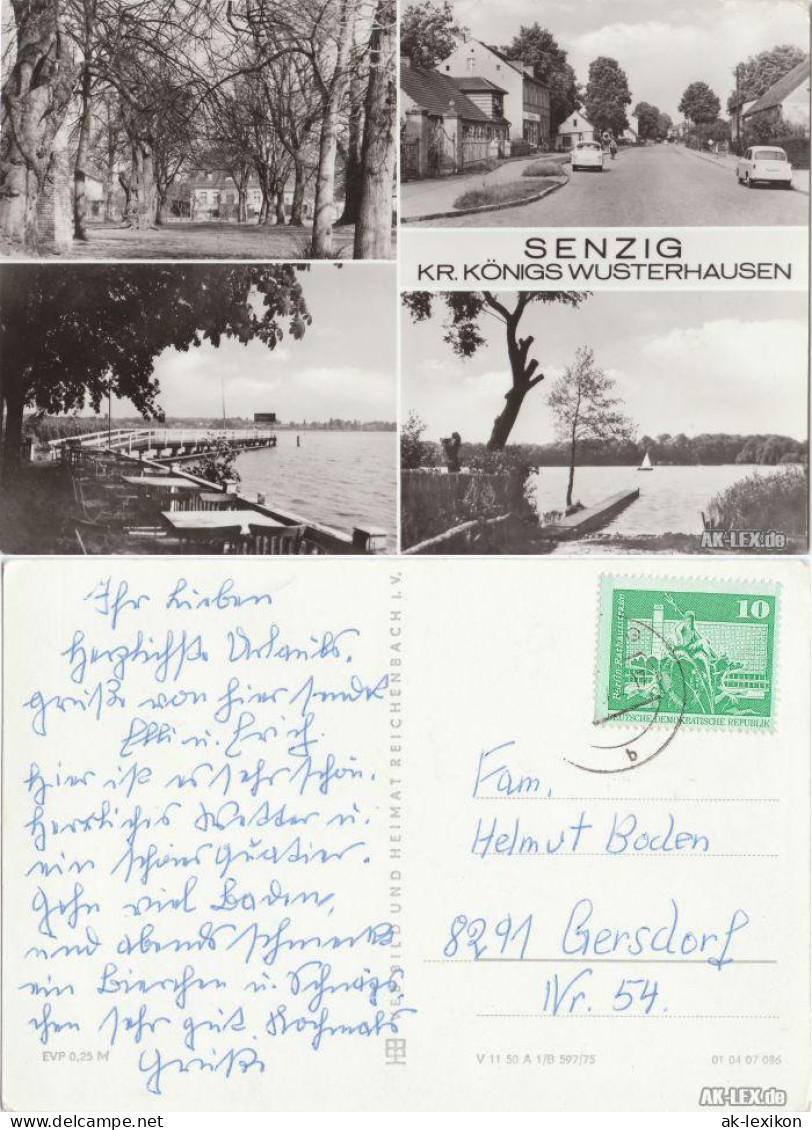 SENZIG
KR. KÖNIGS WUSTERHAUSEN
AK-LEX.de
Ihr Lieben
Herzlichste Urlaubs-
grüße von hier sendet
Elli u. Erich.
Hier ist es sehr schön.
Herrliches Wetter u.
ein schönes Quatier.
Gehn viel Baden,
und abends schmeckt
ein Bierchen u. Schnäps
chen sehr gut. Nochmals
Grüße
EVP 0,25 M
VEB BILD UND HEIMAT REICHENBACH I. V.
10
Berlin, Rathausstraße
DEUTSCHE DEMOKRATISCHE REPUBLIK
b
Fam.
Helmut Boden
8291 Gersdorf
Nr. 54.
V 11 50 A 1/B 597/75
01 04 07 086
AK-LEX.de
ak-lexikon